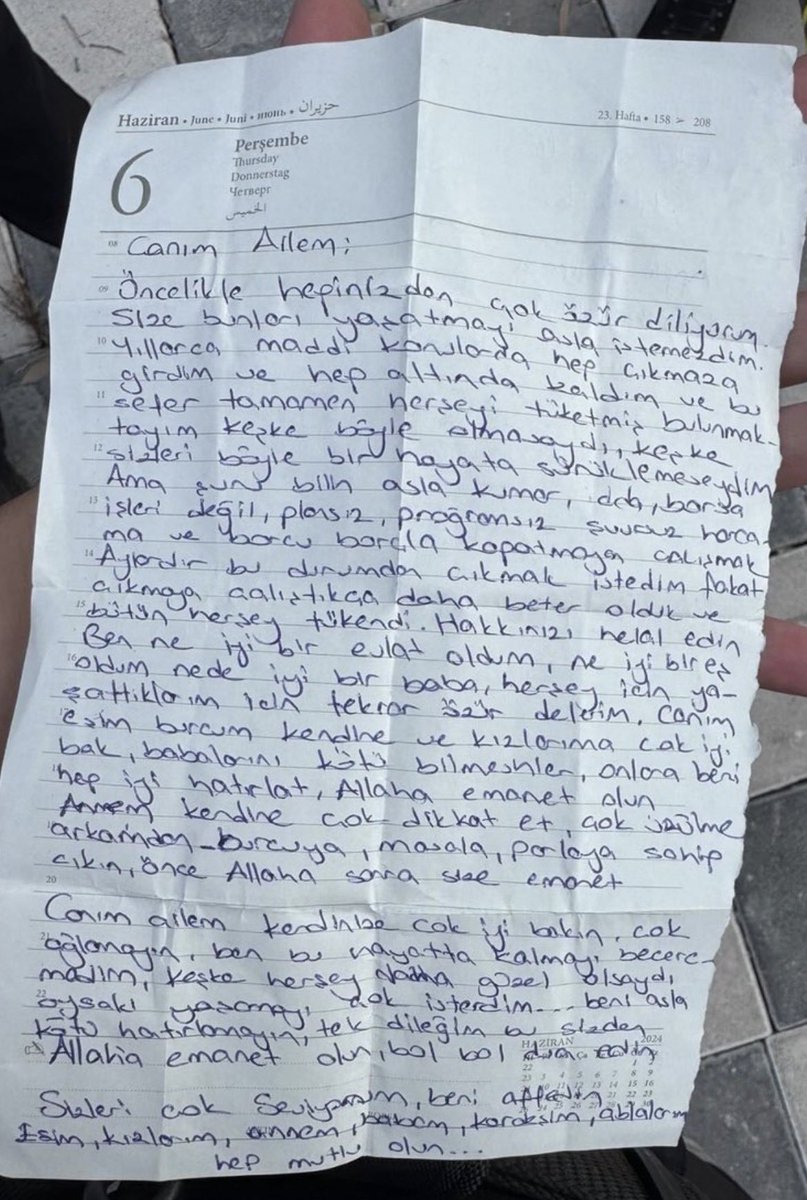 Haziran • June • Juni • июнь • حزيران
23. Hafta • 158 > 208
6
Perşembe
Thursday
Donnerstag
Четверг
الخميس
08 Canım Ailem;
09 Öncelikle hepinizden çok özür diliyorum.
Size bunları yaşatmayı asla istemezdim.
10 Yıllarca maddi konularda hep çıkmaza
girdim ve hep altında kaldım ve bu
11 sefer tamamen herşeyi tüketmiş bulunmak-
tayım keşke böyle olmasaydı, keşke
12 sizleri böyle bir hayata sürüklemeseydim
Ama şunu bilin asla kumar, borsa
13 işleri değil, plansız, proğramsız şuursuz harca-
ma ve borcu borçla kapatmaya çalışmak
14 Aylardır bu durumdan çıkmak istedim fakat
çıkmaya çalıştıkça daha beter olduk ve
15 bütün herşey tükendi. Hakkınızı helal edin
Ben ne iyi bir evlat oldum, ne iyi bir eş
16 oldum nede iyi bir baba, herşey için ya-
şattıklarım için tekrar özür delerim, canım
eşim burcum kendine ve kızlarıma çok iyi
bak, babalarını kötü bilmesinler, onlara beni
hep iyi hatırlat, Allaha emanet olun
Annem kendine çok dikkat et, çok üzülme
arkamdan burcuya, masala, parlaya sahip
çıkın, önce Allaha sonra size emanet
20
Canım ailem kendinize çok iyi bakın, çok
ağlamayın, ben bu hayatta kalmayı becere-
madim, keşke herşey daha güzel olsaydı
22 oysaki yaşamayı çok isterdim... beni asla
kötü hatırlamayın, tek dileğim bu sizden
Allaha emanet olun, bol bol dua edin
HAZİRAN 2024
Sizleri çok Seviyorum, beni affedin
Eşim, kızlarım, annem, babam, kardeşim, ablalarım
hep mutlu olun...